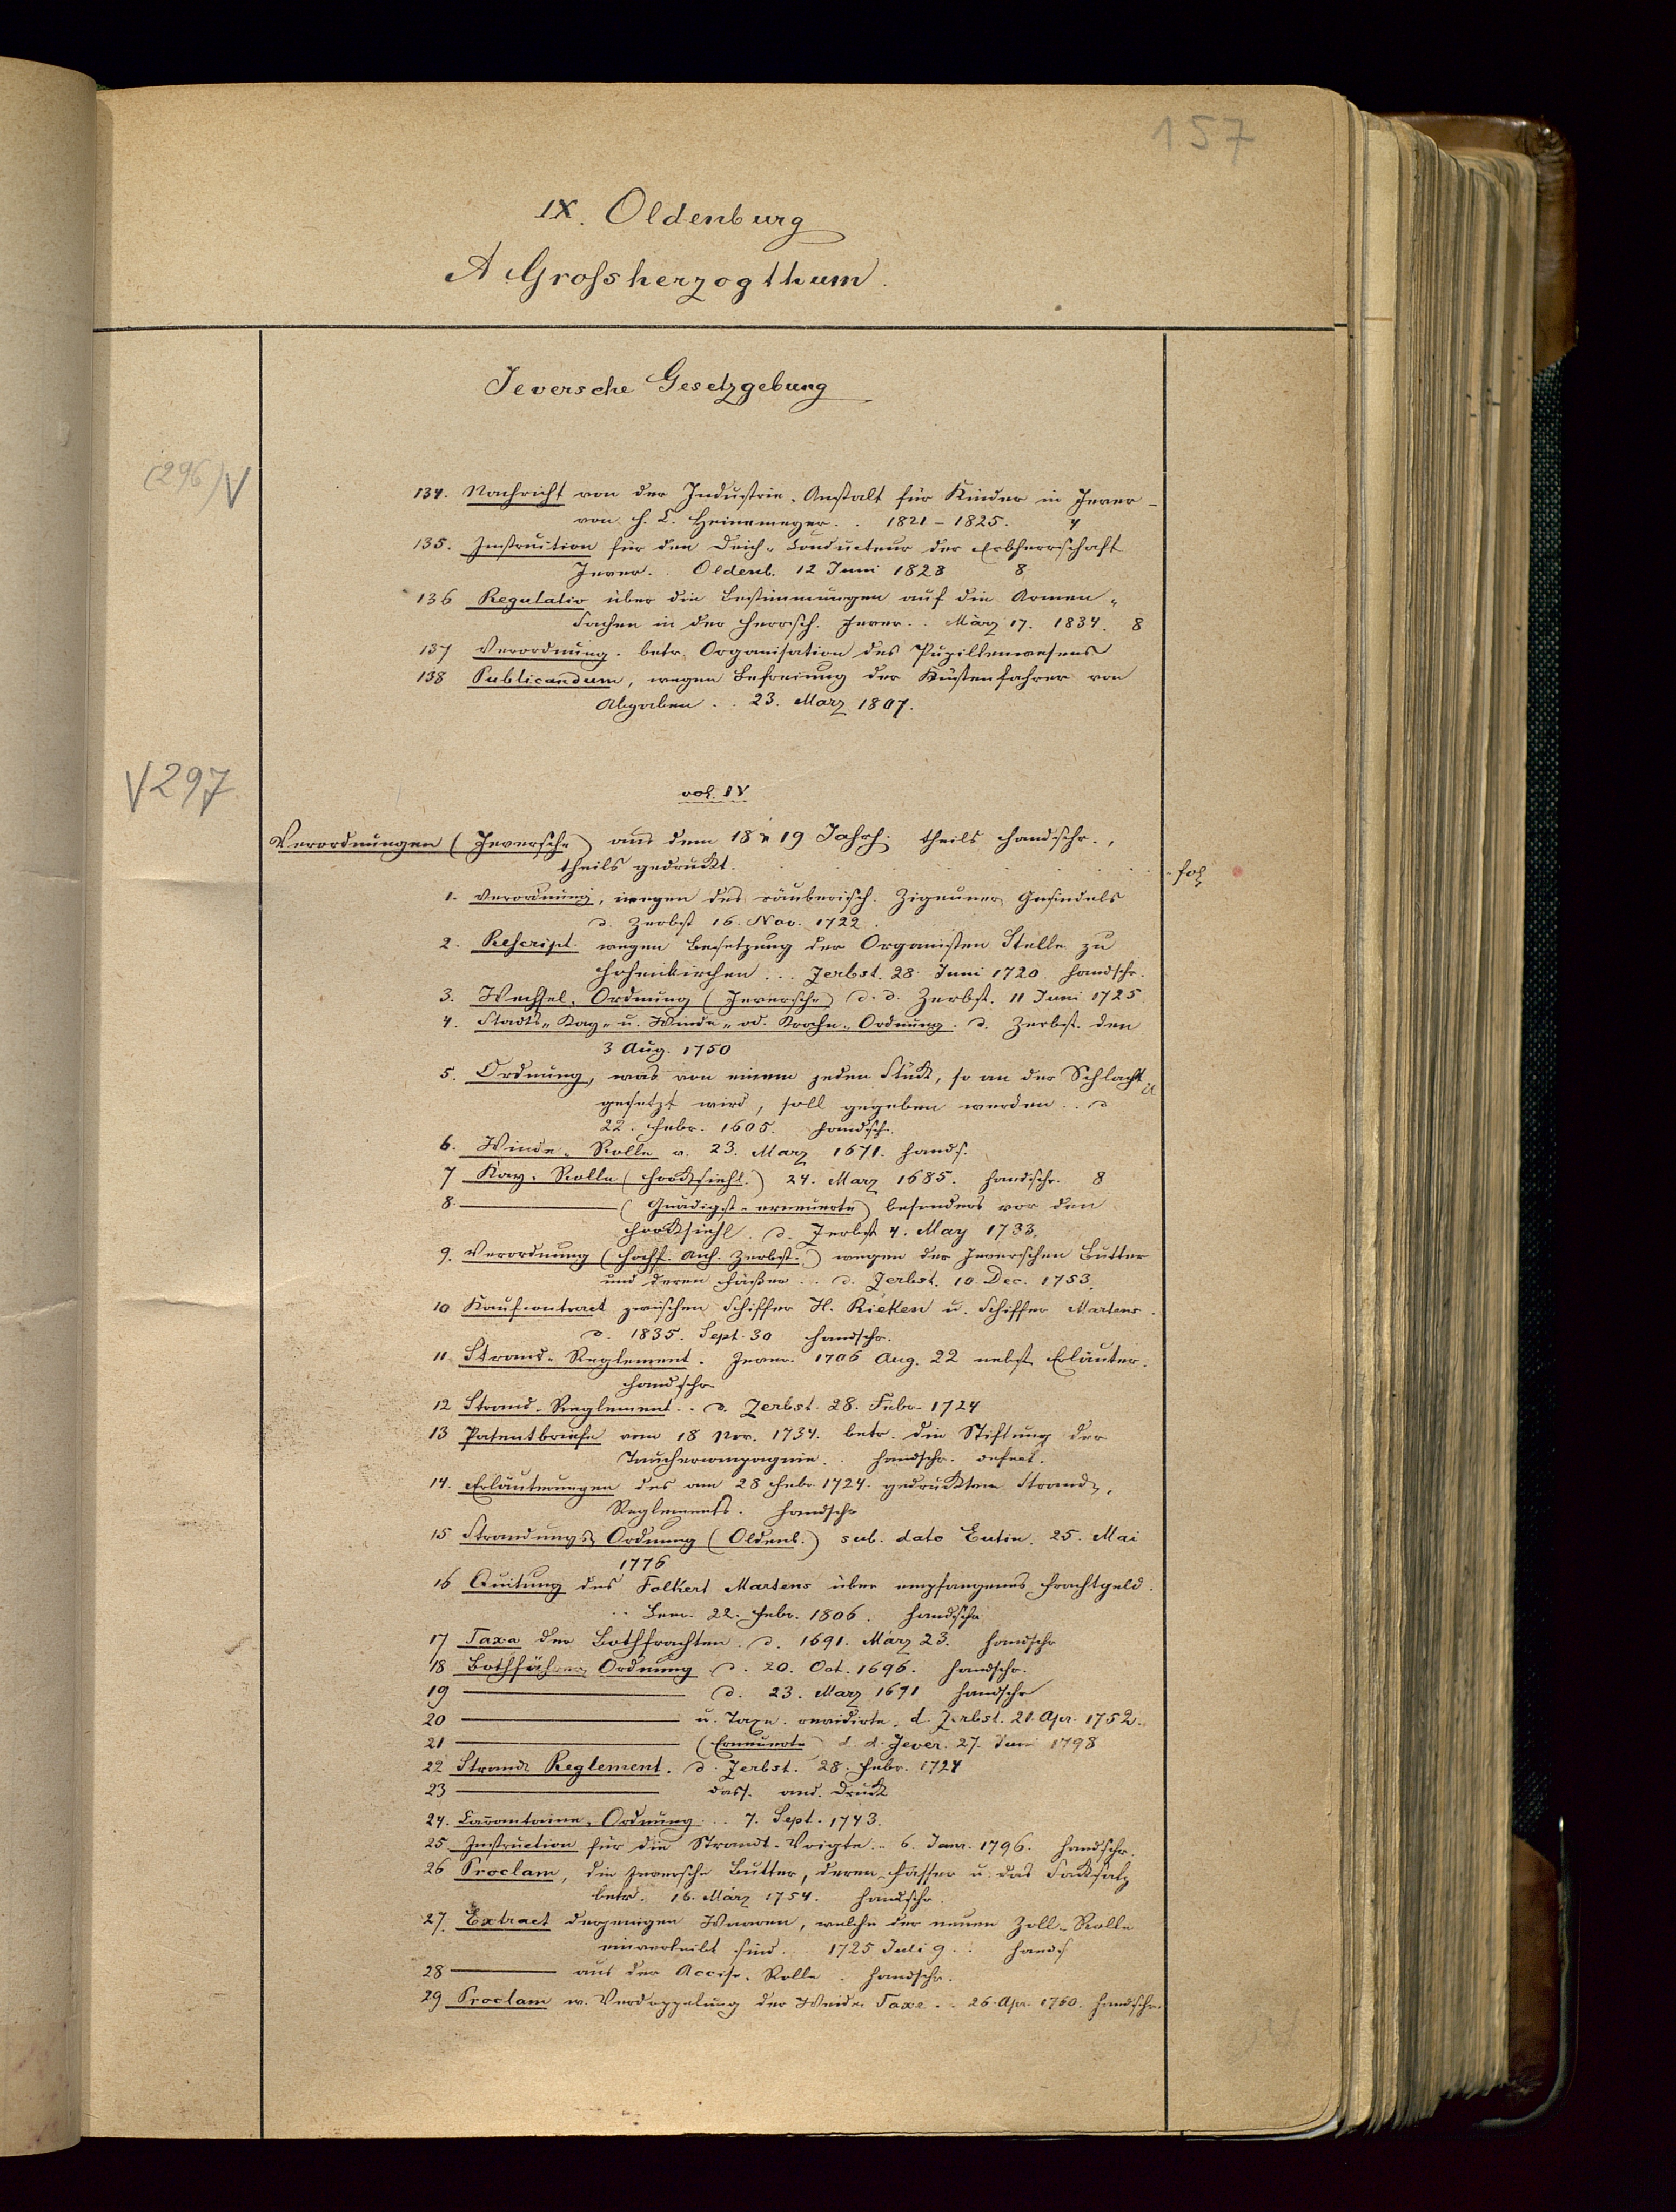 157
IX. Oldenburg
A Grossherzogthum.
Jeversche Gesetzgebung
(296) V
134. Nachricht von der Industrie-Anstalt für Kinder in Jever -
von H. L. Heinemeyer. . 1821 - 1825. 4
135. Instruction für den Deich-Conducteur der Erbherrschaft
Jever. Oldenb. 12 Juni 1828 8
136 Regulativ über die Bestimmungen auf die Armen-
Sachen in der Herrsch. Jever. . März 17. 1834. 8
137 Verordnung. betr. Organisation des Pupillenwesens
138 Publicandum, wegen Befreiung der Küstenfahrer von
Abgaben . . 23. März 1807.
V 297
vol. IV
Verordnungen (Jeversche) aus dem 18 u 19 Jahrh. theils handschr.,
theils gedruckt. fol
1. Verordnung, wegen des räuberisch. Zigeuner Gesindels
d. Zerbst 16. Nov. 1722.
2. Rescript. wegen Besetzung der Organisten Stelle zu
Hohenkirchen . . . Zerbst. 28 Juni 1720 handschr.
3. Wechsel-Ordnung (Jeversche) d. d. Zerbst. 11 Juni 1725
4. Stadts-Kay- u. Winde- od. Krahn-Ordnung. d. Zerbst. den
3 Aug. 1750
5. Ordnung, was von einem jeden Stück, so an der Schlacht
gesetzt wird, soll gegeben werden . . d
22. Febr. 1605. handsch.
6. Winde-Rolle v. 23. März 1671. hands.
7 Kay-Rolle (Hooksiehl.) 24. März 1685. handschr. 8
8. ——— (Gnädigst-erneuerte) besonders vor den
Hooksiehl. d. Zerbst 4. May 1733.
9. Verordnung (Hochf. Anh. Zerbst.) wegen der Jeverschen Butter
und deren Fässer . . d. Zerbst. 10. Dec. 1753.
10 Kaufcontract zwischen Schiffer H. Ricken u. Schiffer Martens.
d. 1835. Sept. 30 handschr.
11 Strand-Reglement. Jever. 1706 Aug. 22 nebst Erläuter.
handschr
12 Strand-Reglement . . d. Zerbst. 28. Febr. 1724
13 Patentbriefe vom 18 Nov. 1734. betr. die Stiftung der
Tauchercompagnie. . handschr. defect.
14. Erläuterungen des am 28 Febr. 1724. gedruckten Strand-
Reglements. handschr
15 Strandungs Ordnung (Oldenb.) sub. dato Eutin. 25. Mai
1776
16 Quitung des Folkert Martens über empfangenes Frachtgeld.
. . Leer. 22. Febr. 1806. handschr
17 Taxa der Bothfrachten. d. 1691. März 23. handschr
18 Bothfährer Ordnung d. 20. Oct. 1696. handschr.
19 ——— d. 23. März 1691 handschr
20 ——— u. Taxe. revidirte. d. Zerbst. 21. Apr. 1752.
21 ——— (Erneuerte) d. d. Jever. 27. Juni 1798
22 Strand Reglement. d. Zerbst. 28. Febr. 1724
23 ——— dass. and. Druck
24. Carantaine-Ordnung . . 7. Sept. 1743.
25 Instruction für die Strandt-Voigte . . 6. Janr. 1796. handschr.
26 Proclam, die Jeversche Butter, deren Fässer u. das Packsalz
betr. 16. März 1754. handschr.
27. Extract derjenigen Waaren, welche der neuen Zoll-Rolle
einverleibt sind . . 1725 Juli 9 . . hands
28 ——— aus der Accise-Rolle. handschr.
29 Proclam w. Verdoppelung der Weide Taxe . . 26. Apr. 1760. handschr.